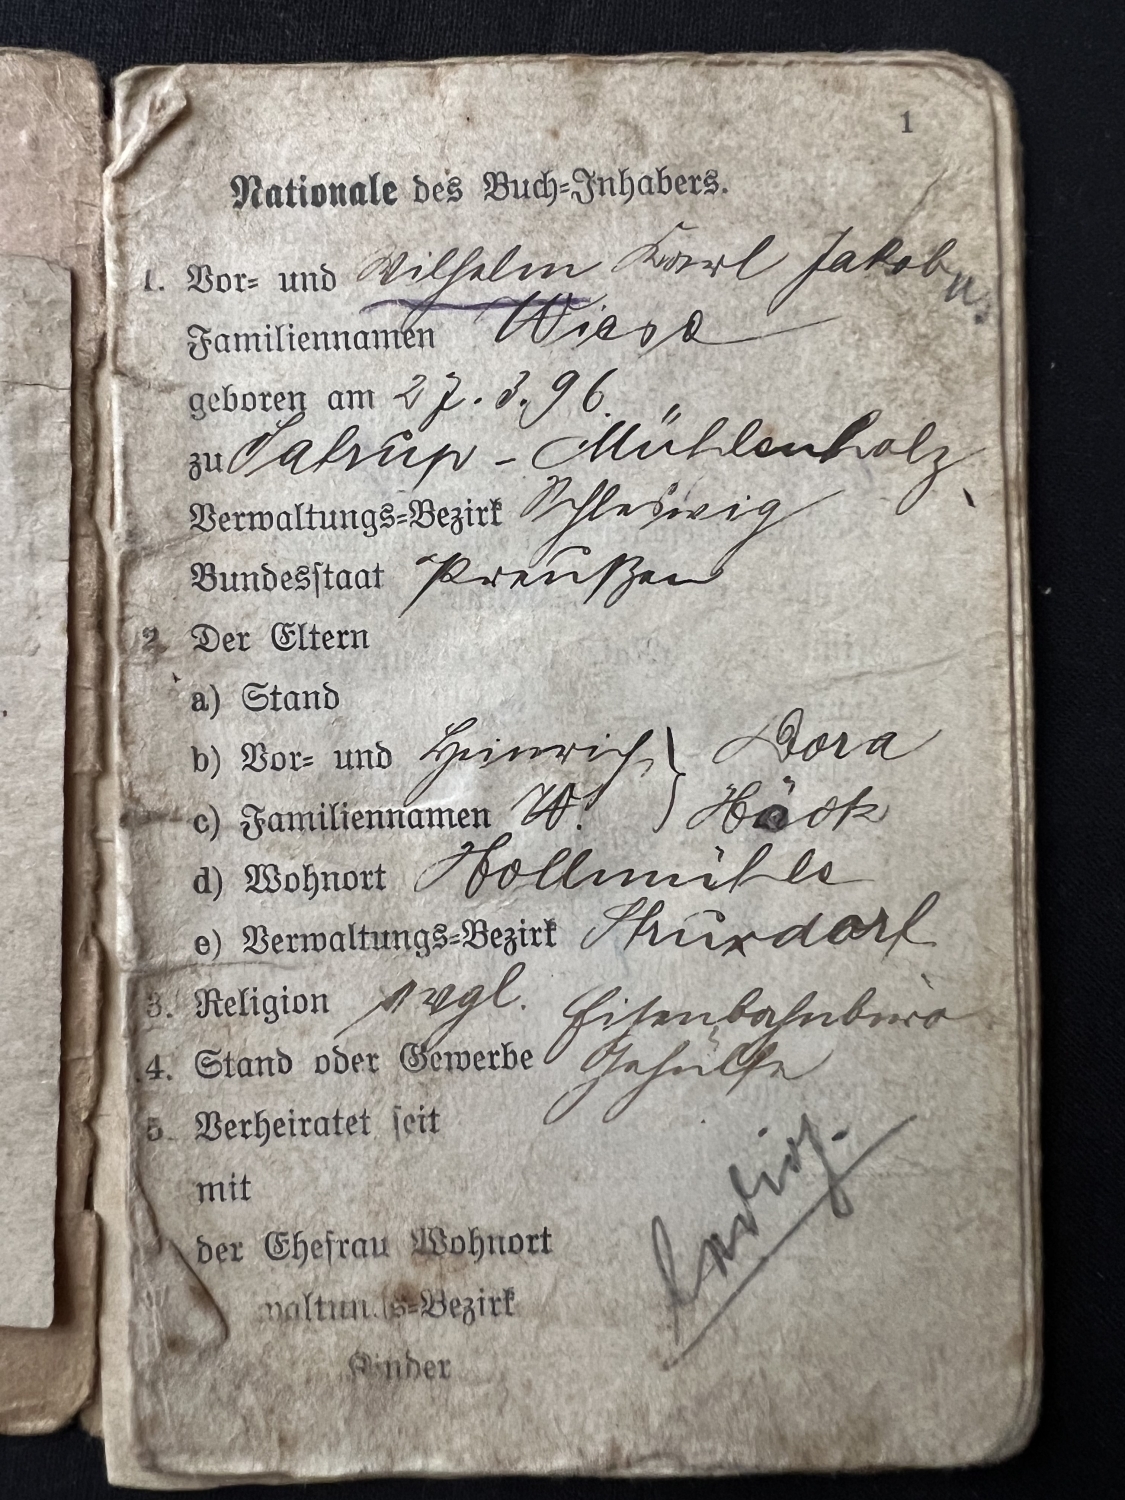 1
Nationale des Buch-Inhabers.
1. Vor- und Wilhelm Karl Jakob
Familiennamen Wiese
geboren am 27.3.96.
zu Satrup - Mühlenholz
Verwaltungs-Bezirk Schleswig
Bundesstaat Preußen
2. Der Eltern
a) Stand
b) Vor- und Heinrich } Dora
c) Familiennamen W.
d) Wohnort Hollmühle
e) Verwaltungs-Bezirk Struxdorf
3. Religion evgl. Eisenbahnbüro
4. Stand oder Gewerbe Gehülfe
5. Verheiratet seit
mit
der Ehefrau Wohnort
waltungs-Bezirk
Kinder
ledig.